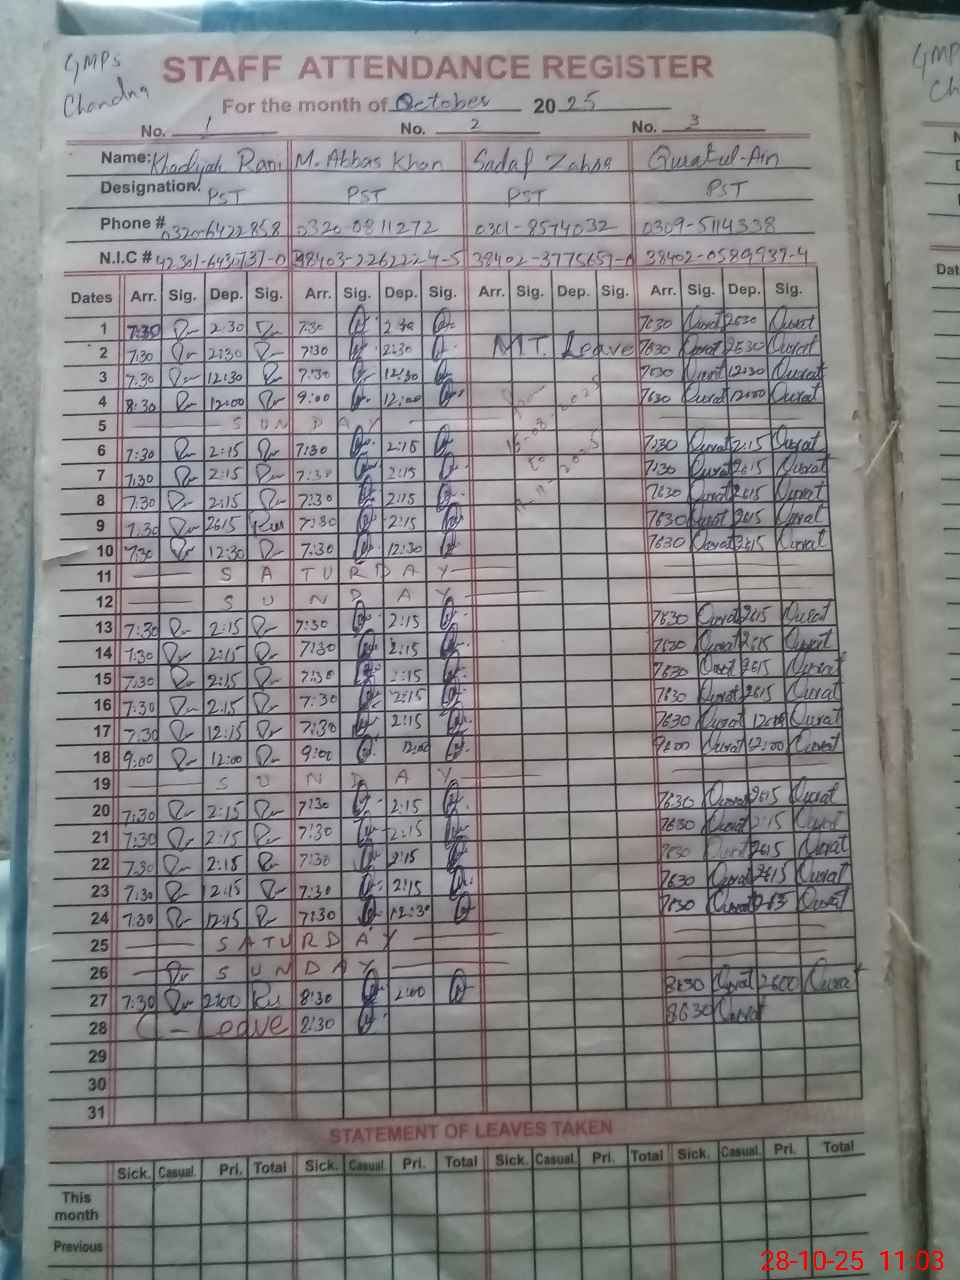 GMPS
Chandna
STAFF ATTENDANCE REGISTER
For the month of October 2025
No. 1 No. 2 No. 3
Name: Khadijah Rani M. Abbas Khan Sadaf Zahra Quratul-Ain
Designation: PST PST PST PST
Phone # 0320-6422858 0320-0811272 0301-8574032 0309-5114338
N.I.C #
Dates Arr. Sig. Dep. Sig. Arr. Sig. Dep. Sig. Arr. Sig. Dep. Sig. Arr. Sig. Dep. Sig.
1 7:30 2:30 7:30 2:30 7:30 Qurat 2:30 Qurat
2 7:30 2:30 7:30 2:30 MT. Leave 7:30 Qurat 2:30 Qurat
3 7:30 12:30 7:30 12:30 7:30 Qurat 12:30 Qurat
4 8:30 12:00 9:00 12:00 7:30 Qurat 12:00 Qurat
5 SUNDAY
6 7:30 2:15 7:30 2:15 7:30 Qurat 2:15 Qurat
7 7:30 2:15 7:30 2:15 7:30 Qurat 2:15 Qurat
8 7:30 2:15 7:30 2:15 7:30 Qurat 2:15 Qurat
9 7:30 2:15 7:30 2:15 7:30 Qurat 2:15 Qurat
10 7:30 12:30 7:30 12:30 7:30 Qurat 2:15 Qurat
11 SATURDAY
12 SUNDAY
13 7:30 2:15 7:30 2:15 7:30 Qurat 2:15 Qurat
14 7:30 2:15 7:30 2:15 7:30 Qurat 2:15 Qurat
15 7:30 2:15 7:30 2:15 7:30 Qurat 2:15 Qurat
16 7:30 2:15 7:30 2:15 7:30 Qurat 2:15 Qurat
17 7:30 12:15 7:30 2:15 7:30 Qurat Qurat
18 9:00 12:00 9:00 12:00 9:00 Qurat 12:00 Qurat
19 SUNDAY
20 7:30 2:15 7:30 2:15 7:30 Qurat 2:15 Qurat
21 7:30 2:15 7:30 2:15 7:30 Qurat 2:15 Qurat
22 7:30 2:15 7:30 2:15 7:30 Qurat 2:15 Qurat
23 7:30 12:15 7:30 2:15 7:30 Qurat 2:15 Qurat
24 7:30 12:15 7:30 12:30 7:30 Qurat Qurat
25 SATURDAY
26 SUNDAY
27 7:30 2:00 8:30 2:00 8:30 Qurat 2:00 Qurat
28 C-Leave 8:30 8:30 Qurat
29
30
31
STATEMENT OF LEAVES TAKEN
Sick. Casual. Pri. Total Sick. Casual. Pri. Total Sick. Casual. Pri. Total Sick. Casual. Pri. Total
This month
Previous
28-10-25 11:03